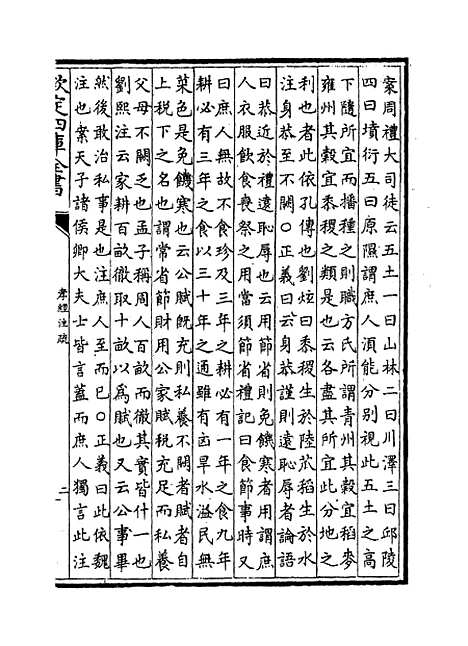 案周禮大司徒云五土一曰山林二曰川澤三曰邱陵
四曰墳衍五曰原隰謂庶人須能分别視此五土之高
下隨所宜而播種之則職方氏所謂青州其穀宜稻麥
雍州其穀宜黍稷之類是也云各盡其所宜此分地之
利也者此依孔傳也劉炫曰黍稷生於陸苽稻生於水
注身恭至不闕○正義曰云身恭謹則遠恥辱者論語
曰恭近於禮遠恥辱也云用節省則免饑寒者用謂庶
人衣服飲食喪祭之用當須節省禮記曰食節事時又
曰庶人無故不食珍及三年之耕必有一年之食九年
耕必有三年之食以三十年之通雖有凶旱水溢民無
菜色是免饑寒也云公賦既充則私養不闕者賦者自
上税下之名也謂常省節財用公家賦税充足而私養
父母不闕乏也孟子稱周人百畝而徹其實皆什一也
劉熙注云家耕百畝徹取十畝以為賦也又云公事畢
然後敢治私事是也注庶人至而已○正義曰此依魏
注也案天子諸侯卿大夫士皆言蓋而庶人獨言此注
欽定四庫全書
孝經注疏
二